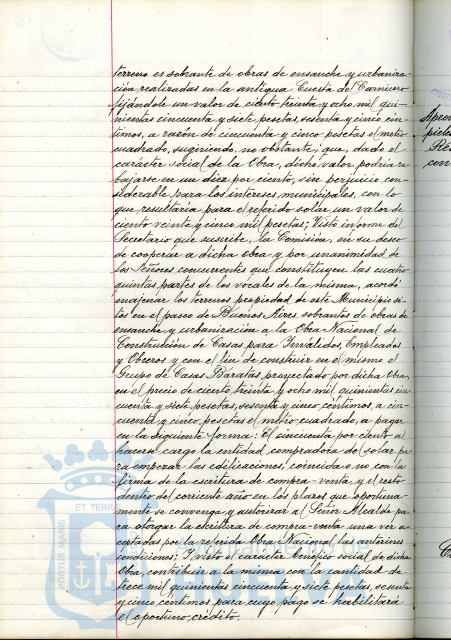 terreno es sobrante de obras de ensanche y urbaniza-
ción realizadas en la antigua Cuesta del Carnicero
fijándole un valor de ciento treinta y ocho mil qui-
nientas cincuenta y siete pesetas, sesenta y cinco cén-
timos, a razón de cincuenta y cinco pesetas el metro
cuadrado, sugiriendo, no obstante, que, dado el
carácter social de la Obra, dicho valor podría re-
bajarse en un diez por ciento, sin perjuicio con-
siderable, para los intereses municipales, con lo
que, resultaría para el referido solar un valor de
ciento veinte y cinco mil pesetas; Visto informe del
Secretario que suscribe, la Comisión, en su deseo
de cooperar a dicha obra y por unanimidad de
los Señores concurrentes que constituyen las cuatro
quintas partes de los vocales de la misma, acordó
enajenar los terrenos propiedad de este Municipio si-
tos en el paseo de Buenos Aires, sobrantes de obras de
ensanche y urbanización a la Obra Nacional de
Construcción de Casas para Inválidos, Empleados
y Obreros y con el fin de construir en el mismo el
Grupo de Casas Baratas, proyectado por dicha Obra,
en el precio de ciento treinta y ocho mil quinientas cin-
cuenta y siete pesetas, sesenta y cinco céntimos, a cin-
cuenta y cinco pesetas el metro cuadrado, a pagar
en la siguiente forma: El cincuenta por ciento al
hacerse cargo la entidad compradora del solar pa-
ra empezar las edificaciones, coincida o no con la
firma de la escritura de compra-venta, y el resto
dentro del corriente año en los plazos que oportuna-
mente se convenga y autorizar al Señor Alcalde pa-
ra otorgar la escritura de compra-venta una vez a-
ceptadas por la referida Obra Nacional las anteriores
condiciones; Y visto el carácter benéfico social de dicha
Obra, contribuir a la misma con la cantidad de
trece mil quinientas cincuenta y siete pesetas, sesenta
y cinco céntimos para cuyo pago se habilitará
el oportuno crédito.
ET TERRA
PORTUS MARIS
con